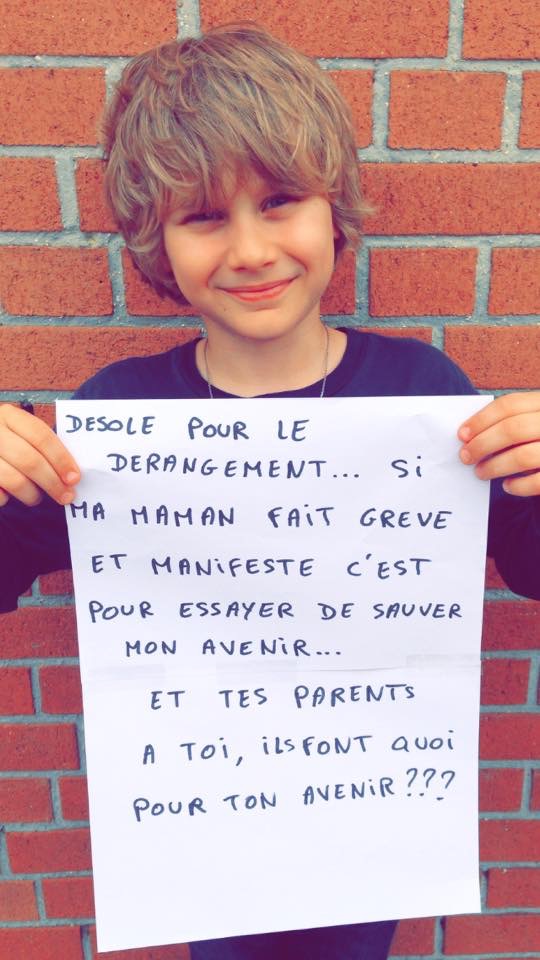 DESOLE POUR LE
DERANGEMENT... Si
MA MAMAN FAiT GREVE
ET MANiFESTE C'EST
POUR ESSAYER DE SAUVER
MON AVENiR...
ET TES PARENTS
A TOi, iLS FONT QUOi
POUR TON AVENiR???